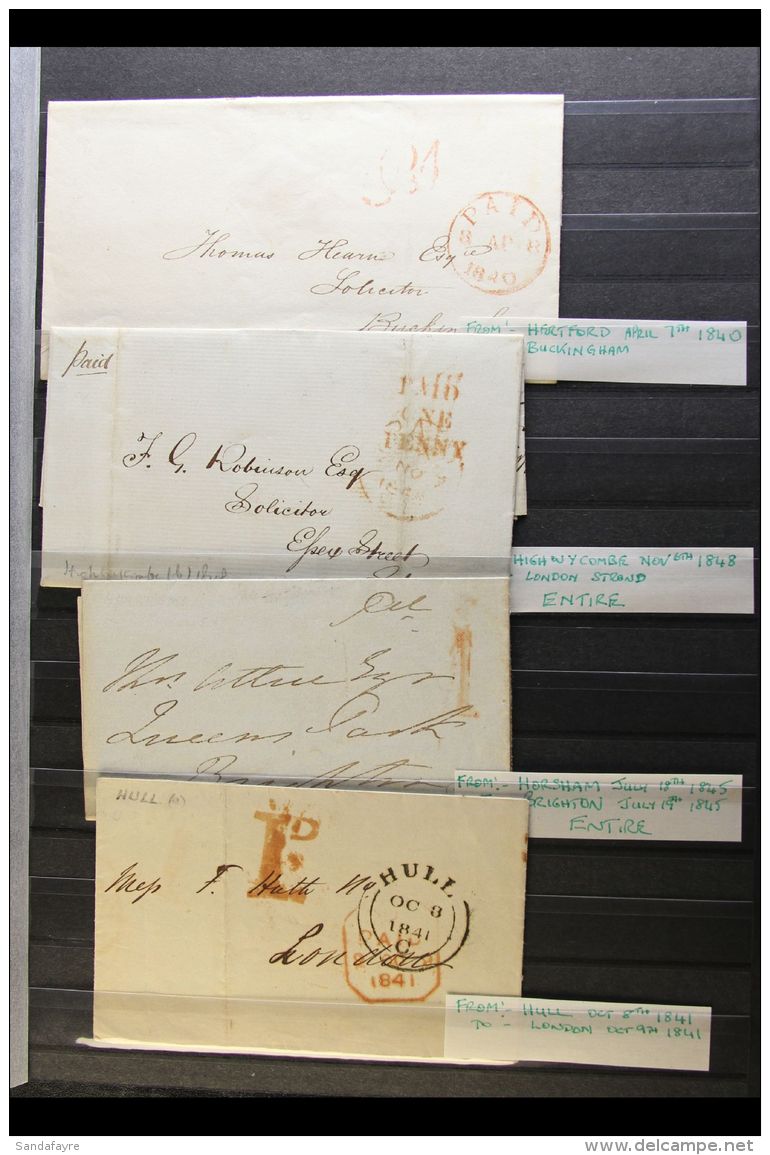 PAID
8 AP 8
1840
Thomas Hearn Esqre
Solicitor
FROM:- HERTFORD APRIL 7TH 1840
BUCKINGHAM
Paid
PAID
ONE
PENNY
NO
F. G. Robinson Esq
Solicitor
Essex Street
HIGH WYCOMBE NOV 6TH 1848
- LONDON STRAND
ENTIRE
1
Queens Park
Brighton
FROM:- HORSHAM JULY 18TH 1845
BRIGHTON JULY 19TH 1845
ENTIRE
HULL
HULL
OC 8
1841
C
Mess F. Huth
London
PAID
1841
FROM:- HULL OCT 8TH 1841
TO - LONDON OCT 9TH 1841
Sandafayre
www.delcampe.net